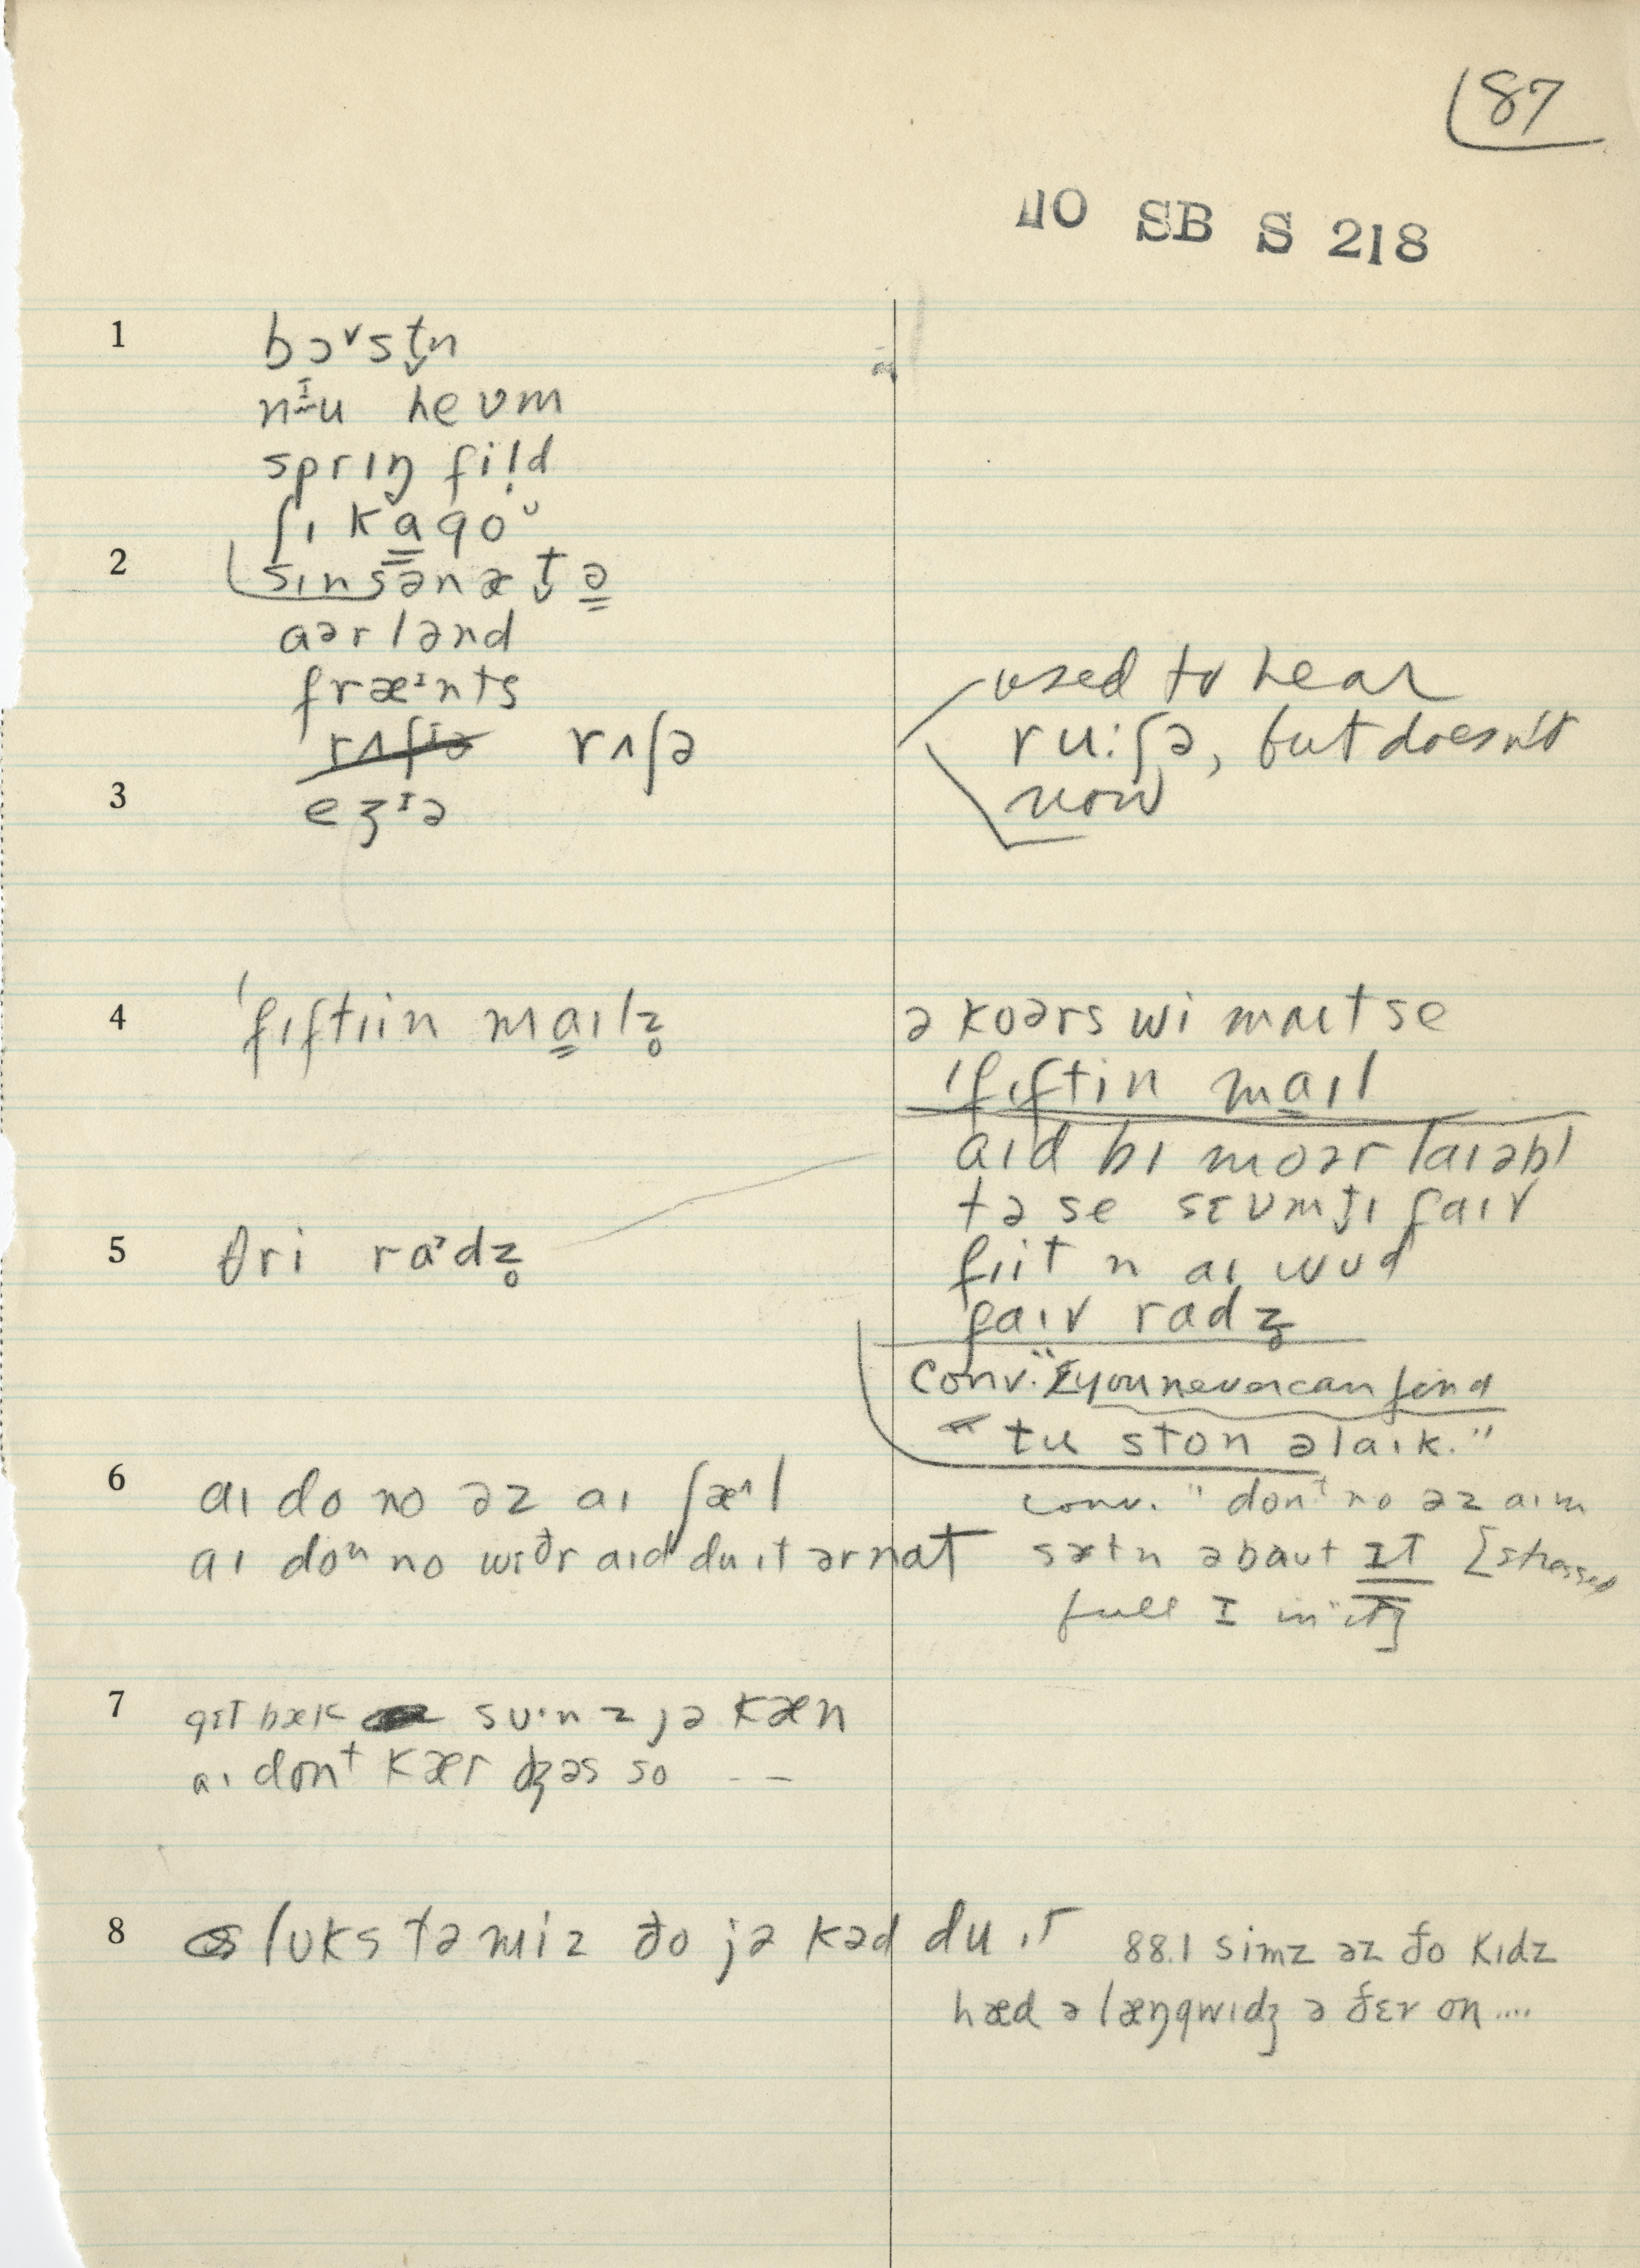 87
40 SB S 218
1 bɔᵛst̬n
nɪu heʊm
sprɪŋ fil̩d
ʃɪ kɑgoᶷ
2 sɪnsənæt̬ə
ɑərlənd
fræᶦnts
rʌʃə
3 eʒᶦə
used to hear
ru:ʃə, but doesn't
now
4 ˈfɪftɪin mɑɪlz̥
ə koərs wi maɪt se
ˈfɪftin mɑɪl
ɑɪd bɪ moər laɪəbl
tə se sɛʊmtɪ faɪv
fɪit n aɪ wʊd
faɪv radz̥
5 θri raᵊdz̥
conv. "you never can find
tu ston əlaɪk."
6 ɑɪ do no əz ɑɪ ʃæᶺl
ɑɪ doⁿ no wɪðr ɑɪd du ɪt ər nat
conv. "donᵗ no əz ɑɪm
sætn əbaʊt ɪt [stressed
full I in "it"]
7 gɪt bæk suˑn z jə kæn
aɪ donᵗ kær dʒəs so - -
8 lʊks tə mi z ðo jə kəd du ɪt
88.1 simz əz ðo kɪdz
hæd ə læŋgwɪdʒ ə ðɛr on....